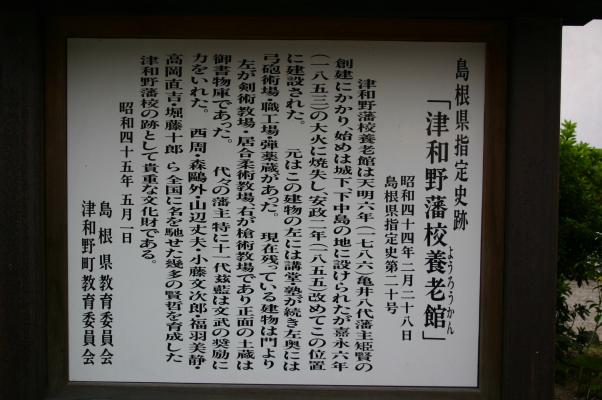 島根県指定史跡
「津和野藩校養老館」
ようろうかん
昭和四十四年二月二十八日
島根県指定史第二十号
津和野藩校養老館は天明六年(一七八六)亀井八代藩主矩賢の
創建にかかり始めは城下、下中島の地に設けられたが嘉永六年
(一八五三)の大火に焼失し、安政二年(一八五五)改めてこの位置
に建設された。 元はこの建物の左には講堂・塾が続き左奥には
弓砲術場・職工場・弾薬蔵があった。 現在残っている建物は門より
左が剣術教場・居合柔術教場、右が槍術教場であり正面の土蔵は
御書物庫であった。 代々の藩主特に十一代玆監は文武の奨励に
力をいれた。 西周・森鷗外・山辺丈夫・小藤文次郎・福羽美静・
高岡直吉・堀藤十郎 ら全国に名を馳せた幾多の賢哲を育成した
津和野藩校の跡として貴重な文化財である。
昭和四十五年 五月一日
島根県教育委員会
津和野町教育委員会